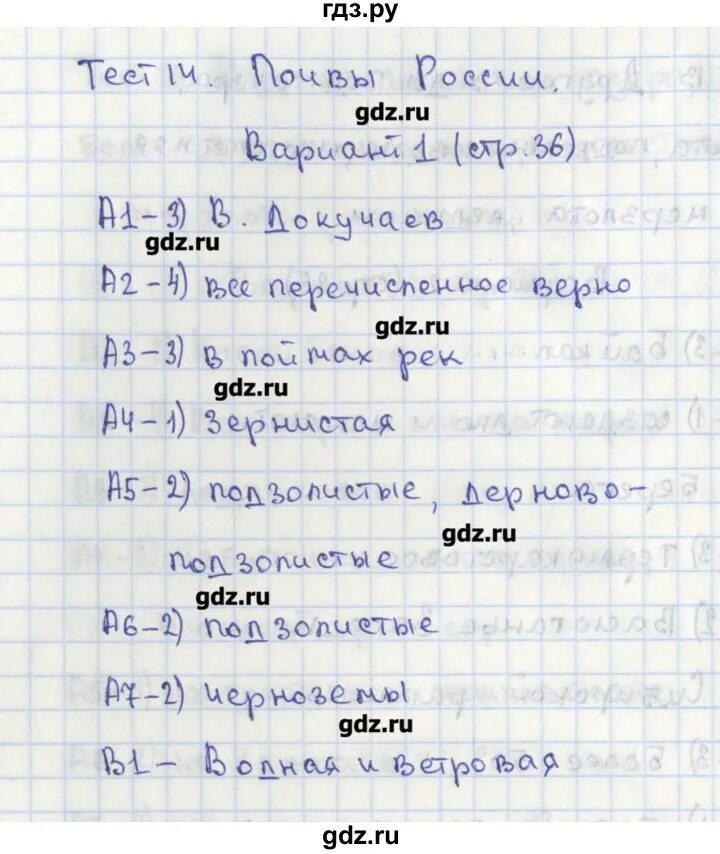 гдз.ру
Тест 14. Почвы России.
gdz.ru
Вариант 1 (стр.36)
А1-3) В. Докучаев
gdz.ru
А2-4) все перечисленное верно
gdz.ru
А3-3) в поймах рек
gdz.ru
А4-1) зернистая
А5-2) подзолистые, дерново-
gdz.ru
подзолистые
gdz.ru
А6-2) подзолистые
А7-2) черноземы
gdz.ru
В1- Водная и ветровая
gdz.ru